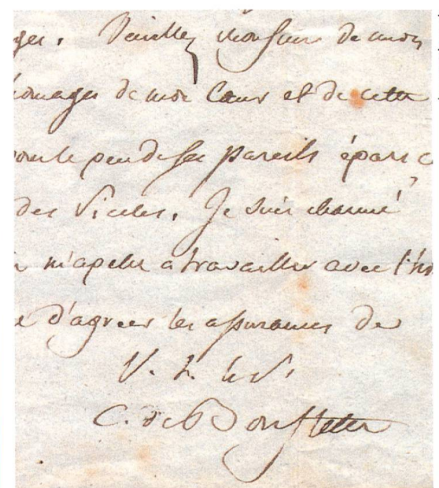 ges. Veuillez monsieur de mon
homages de mon Coeur et de cette
pour le peu de ses pareils épars
des Siecles. Je suis charmé
m'apelle a travailler avec l'h
d'agreer les assurances de
V. t.
C. de Bonstetten